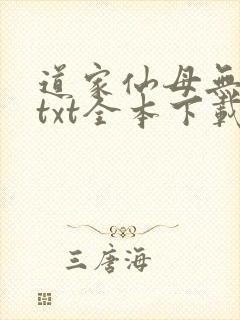 道家仙母無
txt全本下載
三唐海